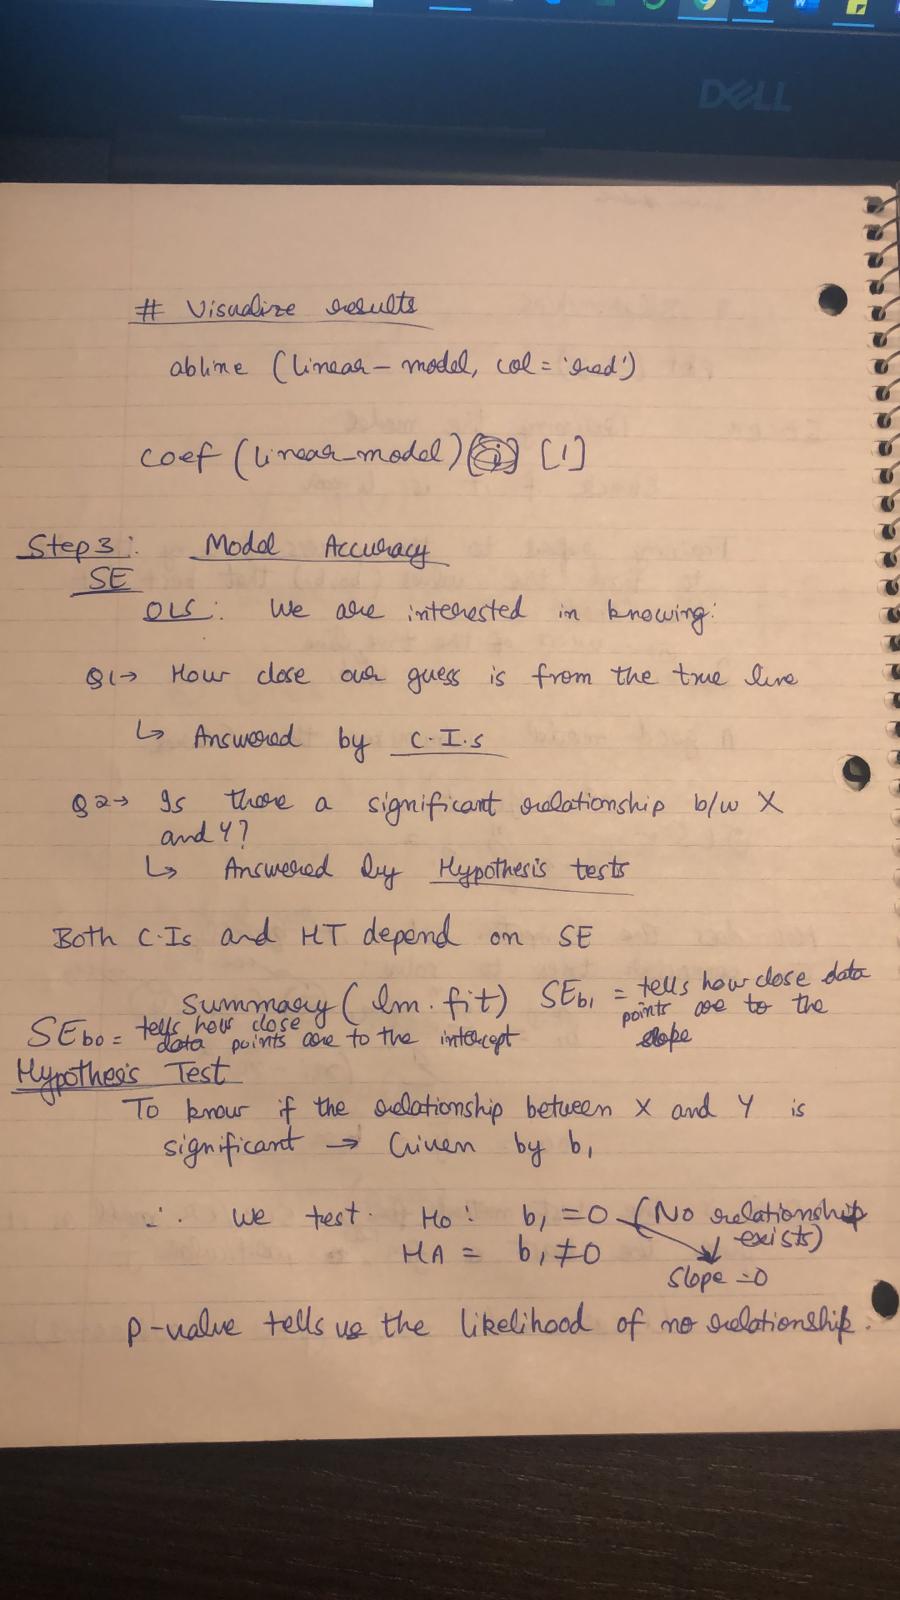 DELL
# Visualize results
abline (linear-model, col = 'red')
coef (linear-model) [1]
Step 3: Model Accuracy
SE
OLS: We are interested in knowing:
Q1→ How close our guess is from the true line
↳ Answered by C.I.s
Q2→ Is there a significant relationship b/w X
and Y?
↳ Answered by Hypothesis tests
Both C.Is and HT depend on SE
Summary (lm.fit) SEb1 = tells how close data
points are to the
slope
SEb0 = tells how close
data points are to the intercept
Hypothesis Test
To know if the relationship between X and Y is
significant → Given by b1
∴ we test. H0: b1 = 0 (No relationship
exists)
HA = b1 ≠ 0
Slope = 0
p-value tells us the likelihood of no relationship.